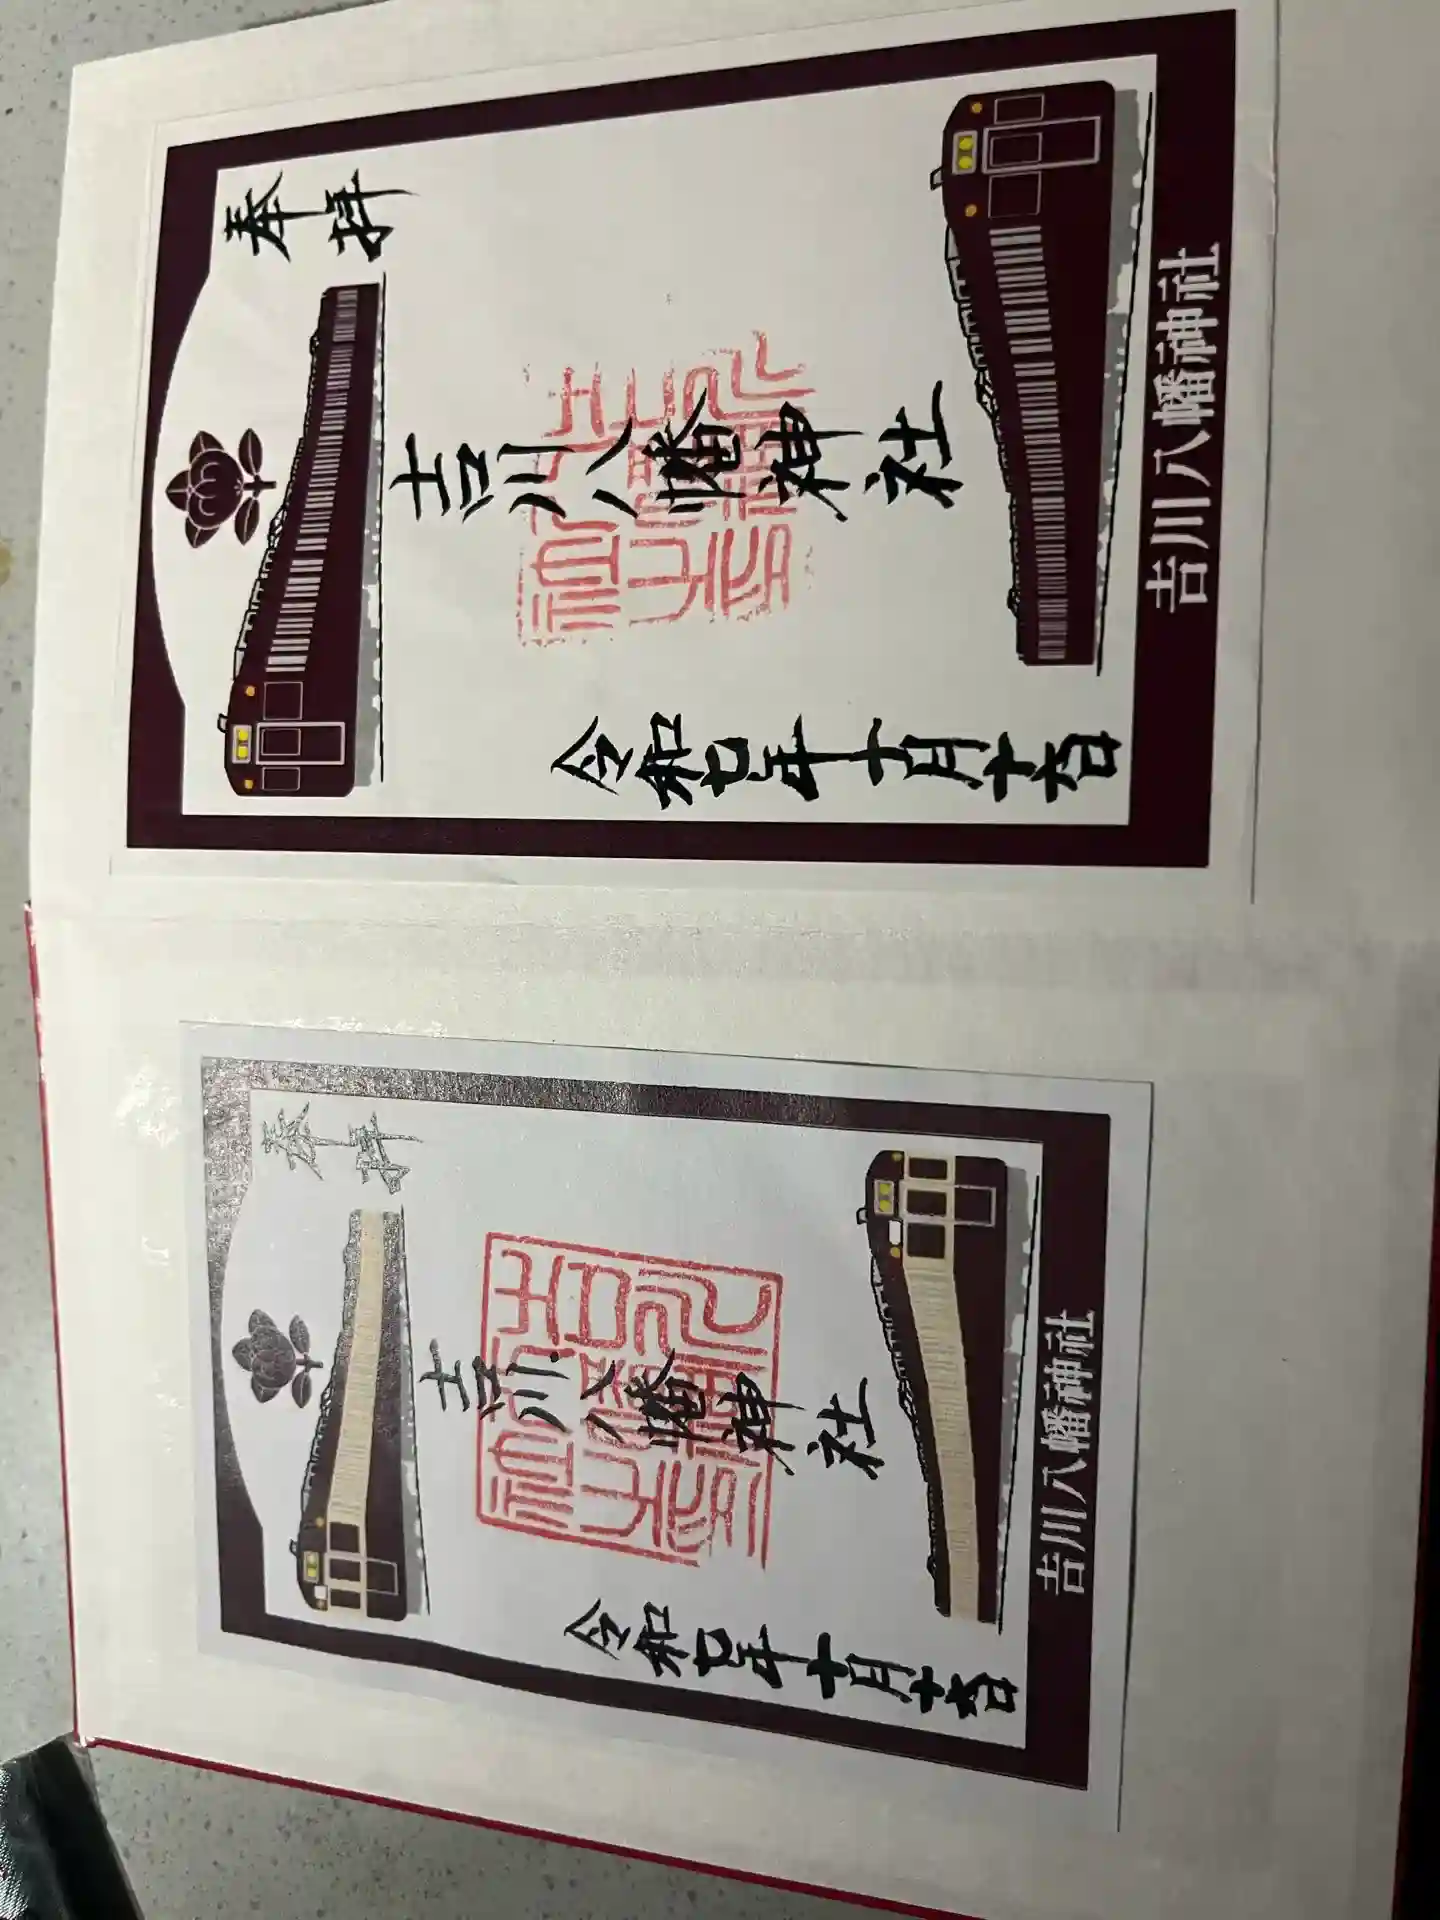 奉拝
吉川八幡神社
令和七年十月十
吉川八幡神社
奉拝
吉川八幡神社
令和七年十月十
吉川八幡神社